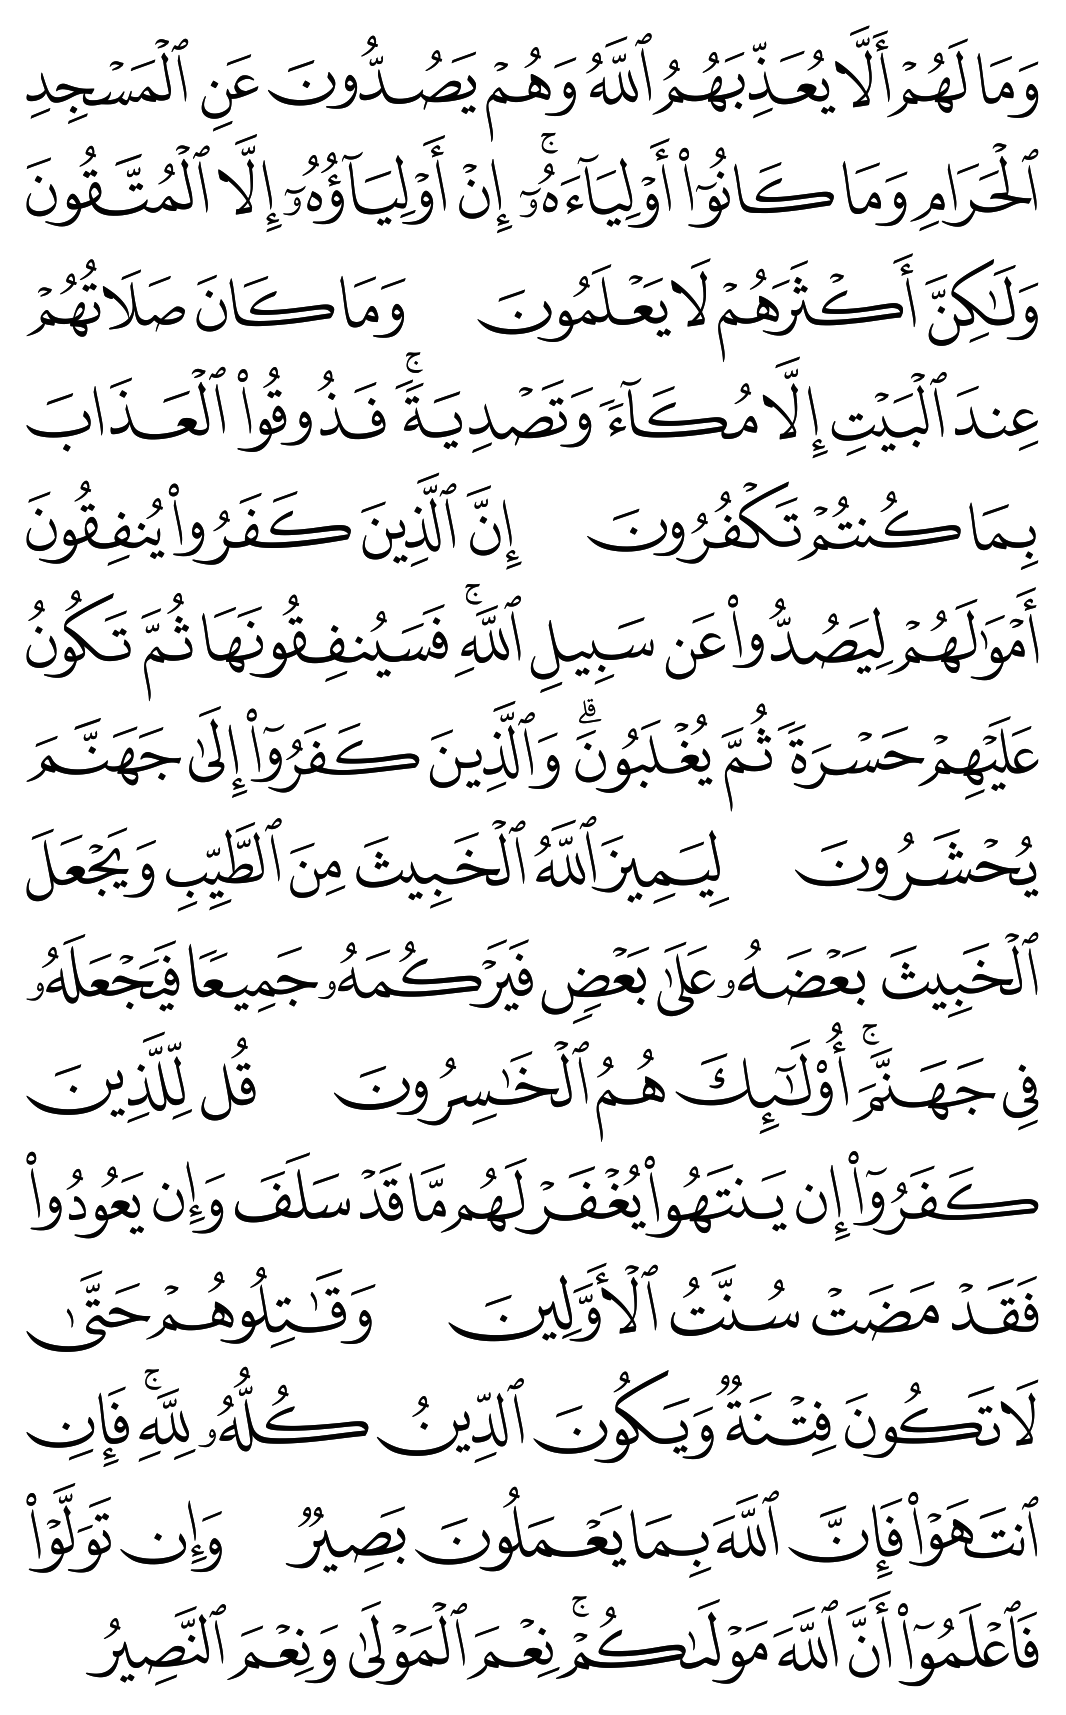 وَمَا لَهُمْ أَلَّا يُعَذِّبَهُمُ ٱللَّهُ وَهُمْ يَصُدُّونَ عَنِ ٱلْمَسْجِدِ
ٱلْحَرَامِ وَمَا كَانُوٓا۟ أَوْلِيَآءَهُۥٓ ۚ إِنْ أَوْلِيَآؤُهُۥٓ إِلَّا ٱلْمُتَّقُونَ
وَلَـٰكِنَّ أَكْثَرَهُمْ لَا يَعْلَمُونَ وَمَا كَانَ صَلَاتُهُمْ
عِندَ ٱلْبَيْتِ إِلَّا مُكَآءً وَتَصْدِيَةً ۚ فَذُوقُوا۟ ٱلْعَذَابَ
بِمَا كُنتُمْ تَكْفُرُونَ إِنَّ ٱلَّذِينَ كَفَرُوا۟ يُنفِقُونَ
أَمْوَٰلَهُمْ لِيَصُدُّوا۟ عَن سَبِيلِ ٱللَّهِ ۚ فَسَيُنفِقُونَهَا ثُمَّ تَكُونُ
عَلَيْهِمْ حَسْرَةً ثُمَّ يُغْلَبُونَ ۗ وَٱلَّذِينَ كَفَرُوٓا۟ إِلَىٰ جَهَنَّمَ
يُحْشَرُونَ لِيَمِيزَ ٱللَّهُ ٱلْخَبِيثَ مِنَ ٱلطَّيِّبِ وَيَجْعَلَ
ٱلْخَبِيثَ بَعْضَهُۥ عَلَىٰ بَعْضٍ فَيَرْكُمَهُۥ جَمِيعًا فَيَجْعَلَهُۥ
فِى جَهَنَّمَ ۚ أُو۟لَـٰٓئِكَ هُمُ ٱلْخَـٰسِرُونَ قُل لِّلَّذِينَ
كَفَرُوٓا۟ إِن يَنتَهُوا۟ يُغْفَرْ لَهُم مَّا قَدْ سَلَفَ وَإِن يَعُودُوا۟
فَقَدْ مَضَتْ سُنَّتُ ٱلْأَوَّلِينَ وَقَـٰتِلُوهُمْ حَتَّىٰ
لَا تَكُونَ فِتْنَةٌ وَيَكُونَ ٱلدِّينُ كُلُّهُۥ لِلَّهِ ۚ فَإِنِ
ٱنتَهَوْا۟ فَإِنَّ ٱللَّهَ بِمَا يَعْمَلُونَ بَصِيرٌ وَإِن تَوَلَّوْا۟
فَٱعْلَمُوٓا۟ أَنَّ ٱللَّهَ مَوْلَىٰكُمْ ۚ نِعْمَ ٱلْمَوْلَىٰ وَنِعْمَ ٱلنَّصِيرُ